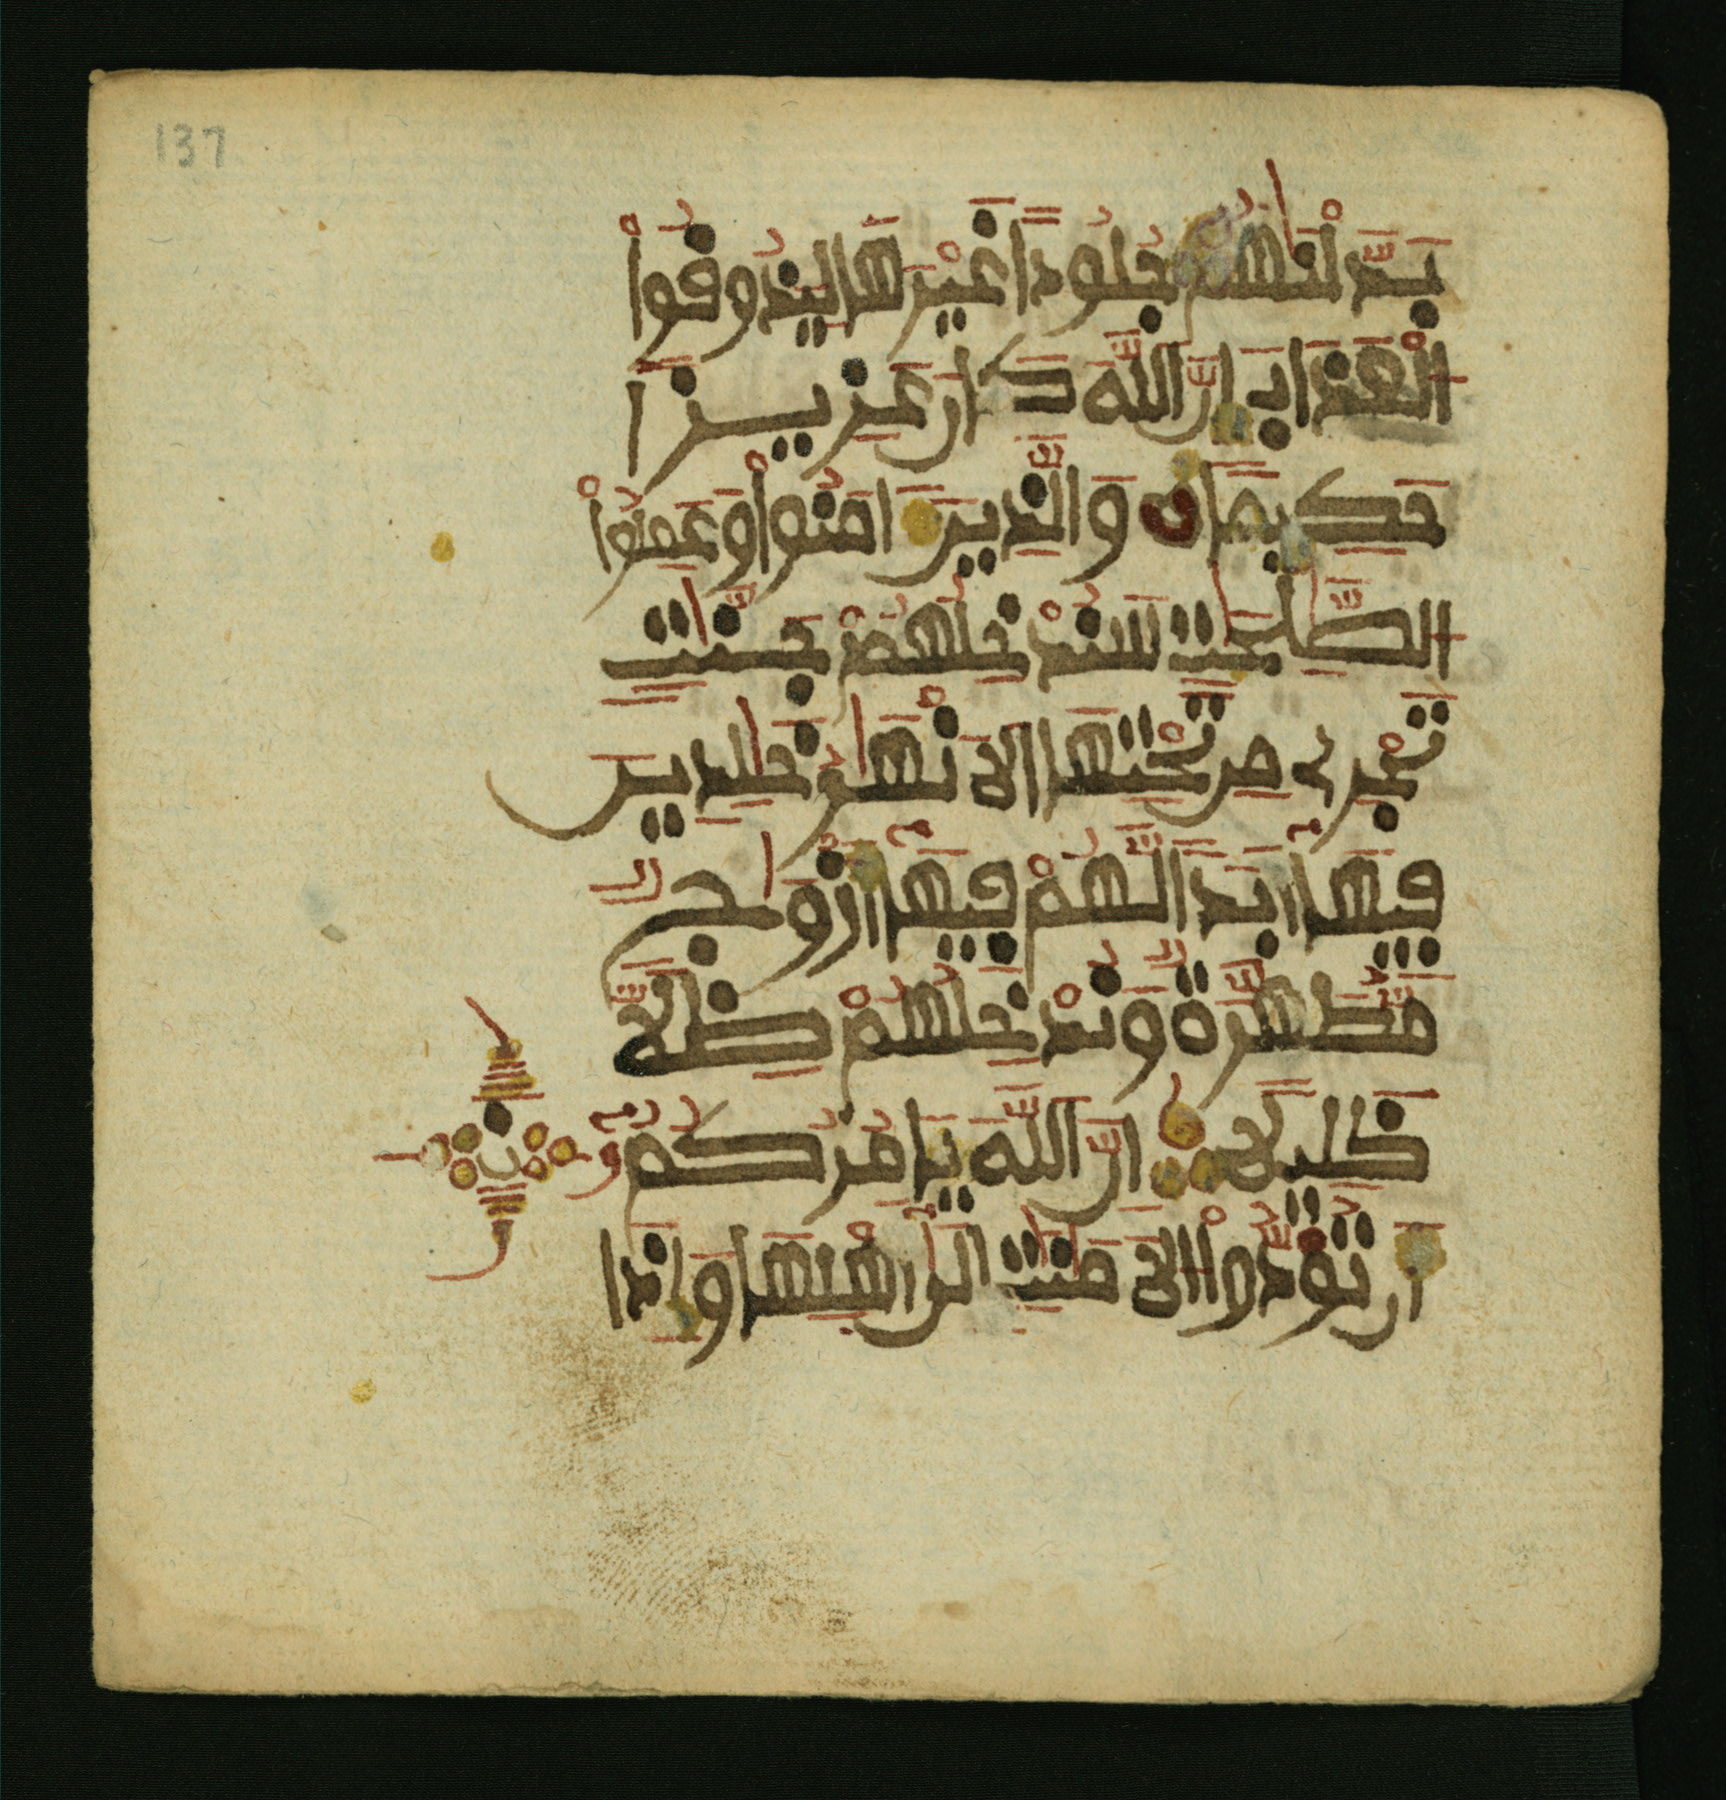 137
بَدَّلْنَٰهُمْ جُلُودًا غَيْرَهَا لِيَذُوقُوا۟
الْعَذَابَ إِنَّ اللَّهَ كَانَ عَزِيزًا
حَكِيمًا وَالَّذِينَ ءَامَنُوا۟ وَعَمِلُوا۟
الصَّٰلِحَٰتِ سَنُدْخِلُهُمْ جَنَّٰتٍ
تَجْرِے مِن تَحْتِهَا الَانْهَٰرُ خَٰلِدِينَ
فِيهَا أَبَدًا لَّهُمْ فِيهَا أَزْوَٰجٌ
مُّطَهَّرَةٌ وَنُدْخِلُهُمْ ظِلًّا
ظَلِيلًا إِنَّ اللَّهَ يَامُرُكُمُۥ
أَن تُوَدُّوا۟ الَامَٰنَٰتِ إِلَىٰ أَهْلِهَا وَإِذَا